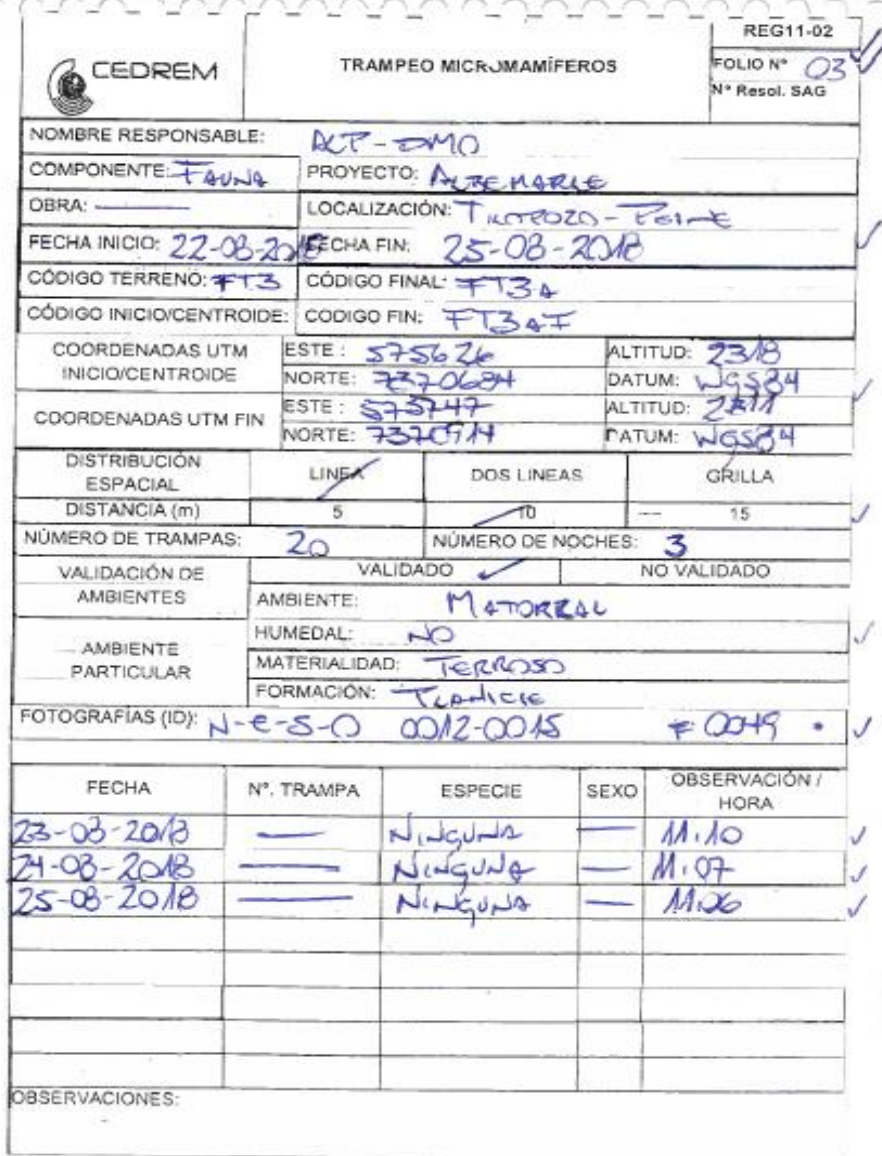 REG11-02
CEDREM
TRAMPEO MICROMAMÍFEROS
FOLIO N° 03
N° Resol. SAG
NOMBRE RESPONSABLE: ACP - DMO
COMPONENTE: FAUNA PROYECTO: ALBEMARLE
OBRA: — LOCALIZACIÓN: - PEINE
FECHA INICIO: 22-08-2018 FECHA FIN: 25-08-2018
CÓDIGO TERRENO: FT3 CÓDIGO FINAL: FT3A
CÓDIGO INICIO/CENTROIDE: CODIGO FIN: FT3AF
COORDENADAS UTM INICIO/CENTROIDE ESTE: 575626 ALTITUD: 2318
NORTE: 7370684 DATUM: WGS84
COORDENADAS UTM FIN ESTE: 575747 ALTITUD: 2311
NORTE: 7370914 DATUM: WGS84
DISTRIBUCIÓN ESPACIAL LINEA DOS LINEAS GRILLA
DISTANCIA (m) 5 10 15
NÚMERO DE TRAMPAS: 20 NÚMERO DE NOCHES: 3
VALIDACIÓN DE AMBIENTES VALIDADO ✓ NO VALIDADO
AMBIENTE: MATORRAL
AMBIENTE PARTICULAR HUMEDAL: NO
MATERIALIDAD: TERROSO
FORMACIÓN: PLANICIE
FOTOGRAFÍAS (ID): N-E-S-O 0012-0015 F 0049
FECHA N°. TRAMPA ESPECIE SEXO OBSERVACIÓN / HORA
23-08-2018 — NINGUNA — 11:10
24-08-2018 — NINGUNA — 11:07
25-08-2018 — NINGUNA — 11:06
OBSERVACIONES: